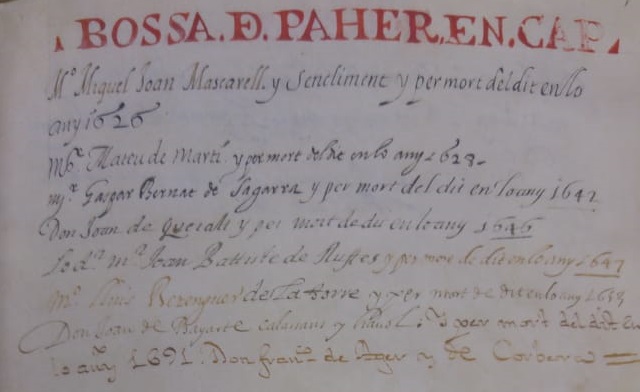 BOSSA. Đ. PAHER. EN. CAP.
Mº Miquel Joan Mascarell y Sentliment y per mort del dit en lo
any 1626
Mateu de Martí y per mort del dit en lo any 1628
Gaspar Bernat de Sagarra y per mort del dit en lo any 1642
Don Joan de Queralt y per mort de dit en lo any 1646
Joan Battiste de y per mort de dit en lo any 1647
Mº Lluis Berenguer de La Torre y per mort de dit en lo any
Don Joan de Bayarte calasans y Y per mort del dit En
lo añy 1691. Don fran.ᶜᵒ de Ager y de Corbera